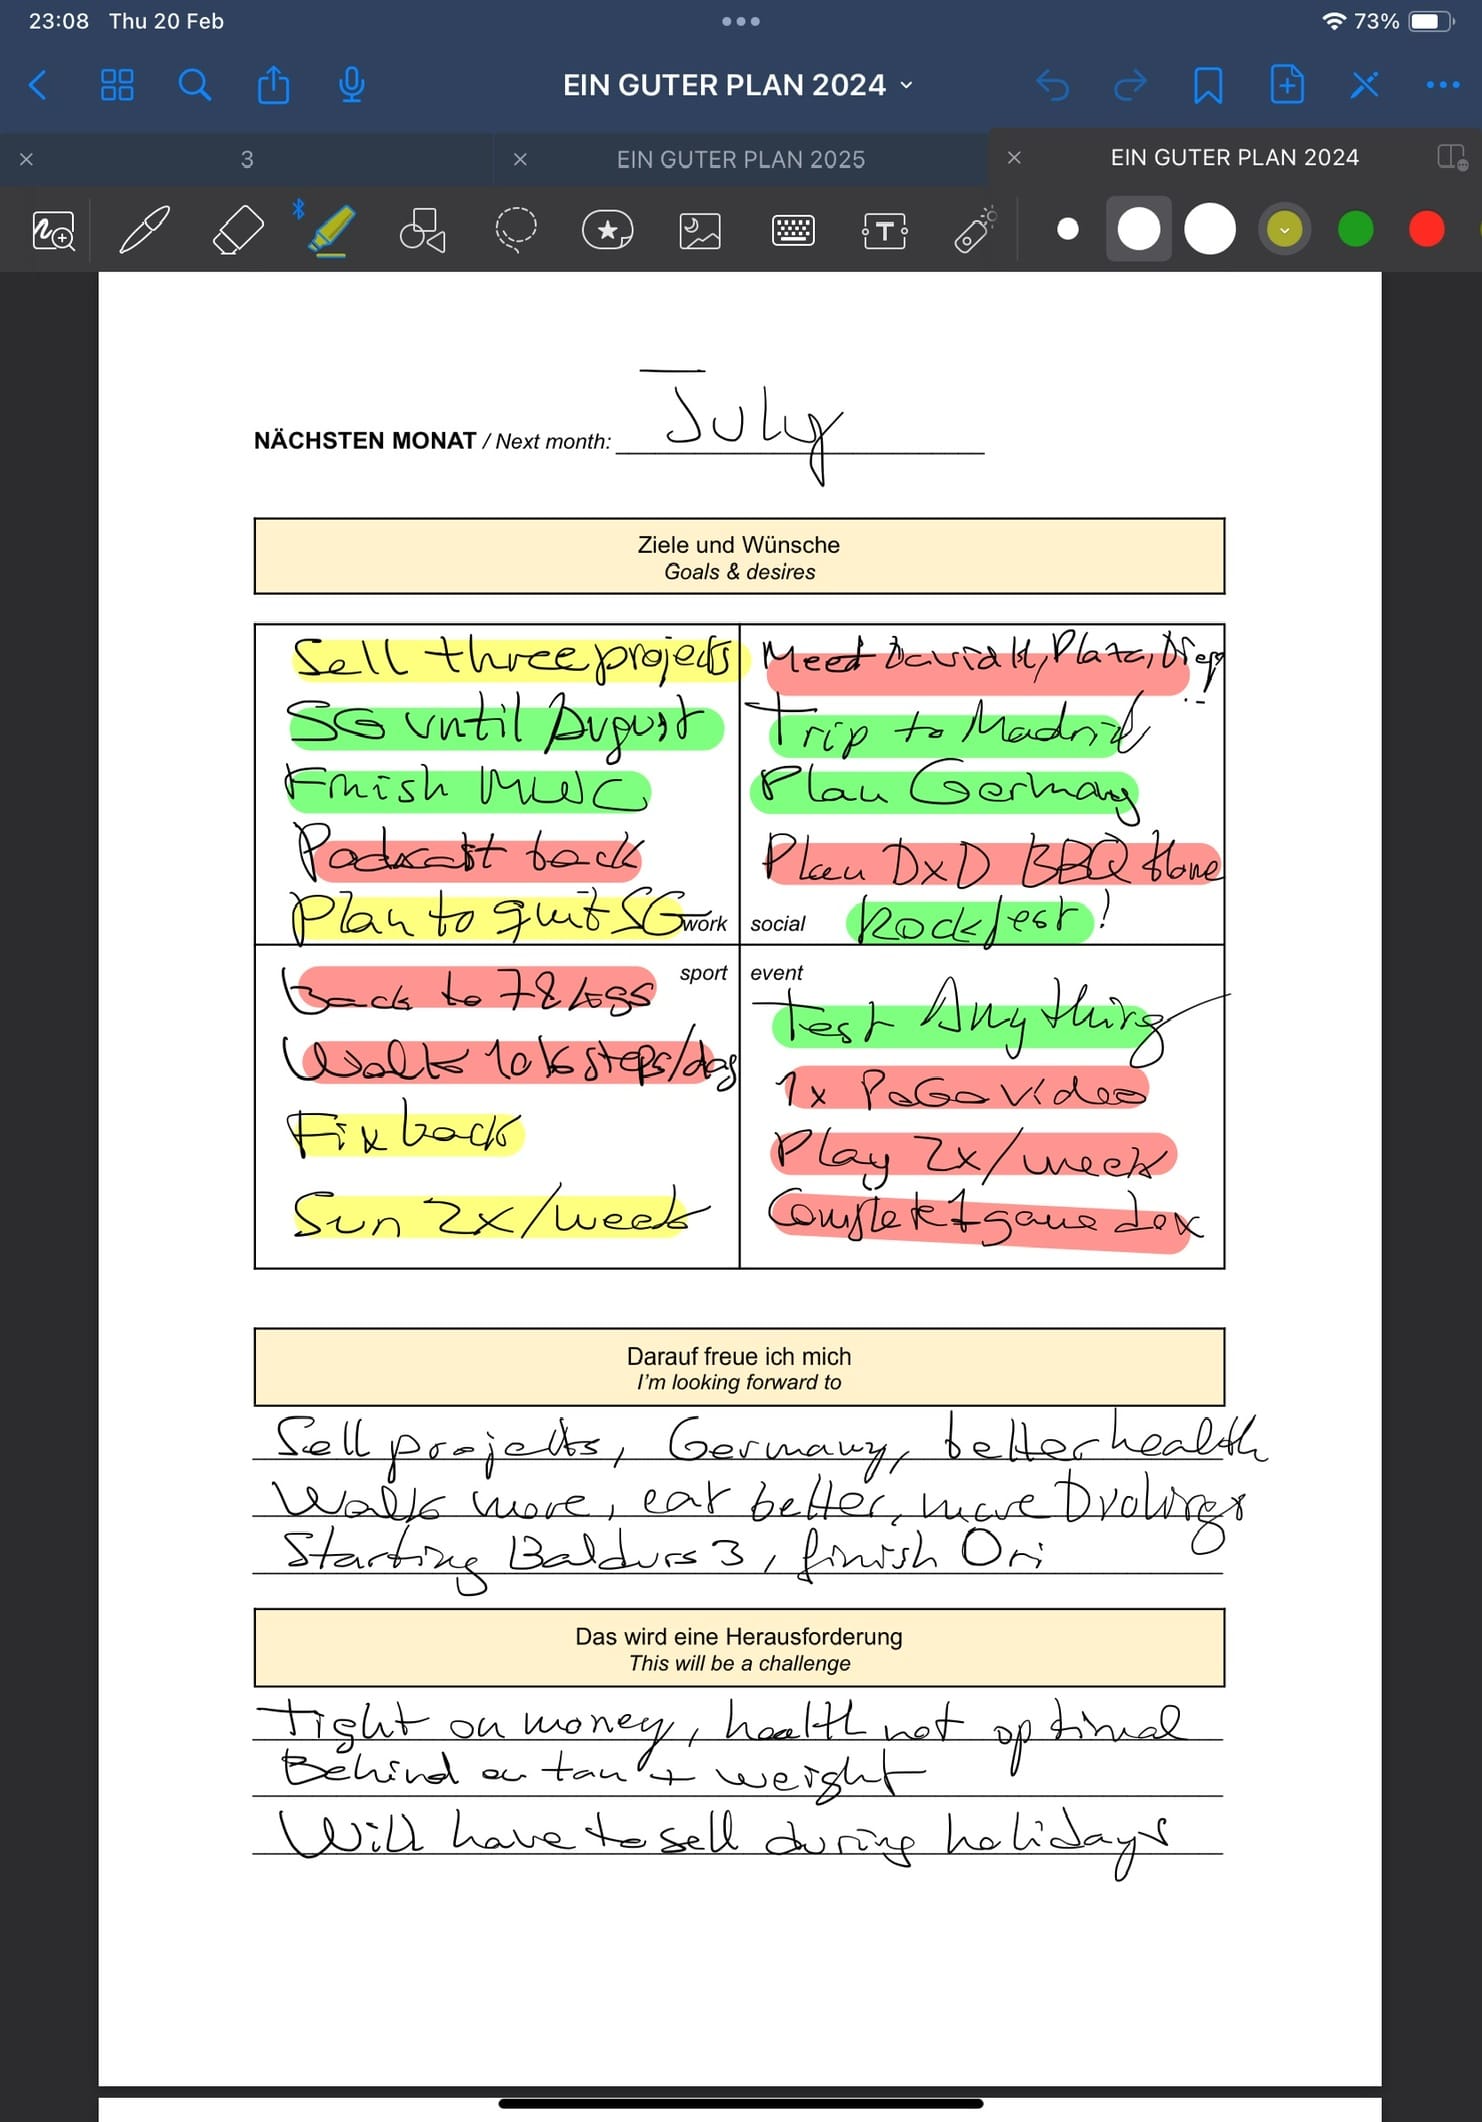 23:08 Thu 20 Feb
73%
EIN GUTER PLAN 2024
3
EIN GUTER PLAN 2025
EIN GUTER PLAN 2024
T
July
NÄCHSTEN MONAT / Next month:
Ziele und Wünsche
Goals & desires
Sell three projects
SG until August
Finish MWC
Podcast back
Plan to quit SG
work
Meet David H, Plaza,
Trip to Madrid
Plan Germany
Plan DxD BBQ Home
social
Rockfest!
sport
Back to 78 kgs
Walk 10k steps/day
Fix back
Sun 2x/week
event
Test Anything
1x PoGo video
Play 2x/week
Complete 1 game
Darauf freue ich mich
I'm looking forward to
Sell projects, Germany, better health
Walk more, eat better, more
Starting Baldurs 3, finish Ori
Das wird eine Herausforderung
This will be a challenge
Tight on money, health not optimal
Behind on tan + weight
Will have to sell during holidays